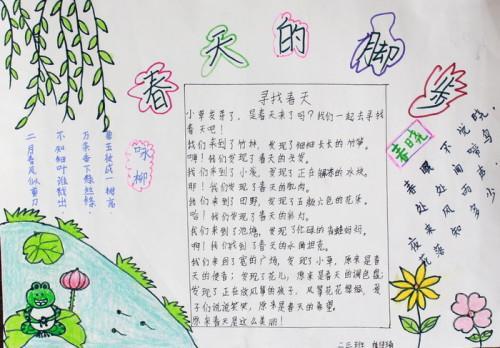 春天的脚步
咏柳
碧玉妆成一树高,
万条垂下绿丝绦。
不知细叶谁裁出,
二月春风似剪刀。
寻找春天
小草发芽了,是春天来了吗?我们一起去寻找
春天吧!
我们来到了竹林,发现了细细长长的竹笋。
啊!我们发现了春天的头发。
我们来到了小溪,发现了正在解冻的冰块。
耶!我们发现了春天的肌肉。
我们来到了田野,发现了五颜六色的花朵。
哈!我们发现了春天的彩衣。
我们来到了池塘,发现了忙碌的青蛙好妈。
啊!我们找到了春天的
我们来到了宽的广场,发现了小草,原来是春天
的使者;发现了花儿,原来是春天的调色盘;
发现了正在放风筝的孩子,风筝花花绿绿,孩
子们说说笑笑,原来是春天的希望。
原来春天是这么美丽!
春晓
春眠不觉晓,
处处闻啼鸟。
夜来风雨声,
花落知多少
二三班